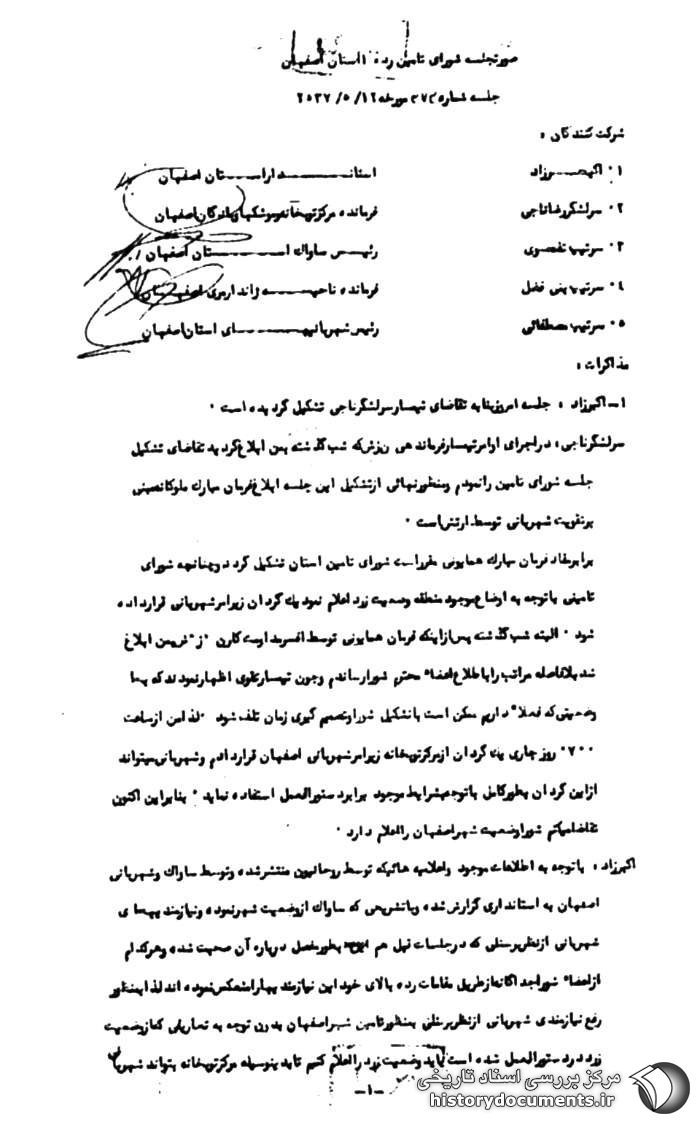 صورتجلسه شورای تامین رده ۱ استان اصفهان
جلسه شماره ۳۷۲ مورخه ۲۵۳۷/۵/۱۲
شرکت کنندگان :
۱۰ اکبرزاد استاندار استان اصفهان
۲۰ سرلشگر رضا ناجی فرمانده مرکز توپخانه و موشکهای اصفهان
۳۰ سرتیپ تقوی رئیس ساواك استان اصفهان
۴۰ سرتیپ بنی فضل فرمانده ناحیه ژاندارمری اصفهان
۵۰ سرتیپ مصطفائی رئیس شهربانیهای استان اصفهان
مذاکرات :
۱- اکبرزاد : جلسه امروز بنا به تقاضای تیمسار سرلشگر ناجی تشکیل گردیده است ۰
سرلشگر ناجی : در اجرای اوامر تیمسار فرماندهی که شب گذشته بمن ابلاغ گردید تقاضای تشکیل
جلسه شورای تامین را نمودم و منظور نهائی از تشکیل این جلسه ابلاغ فرمان مبارك ملوکانه مبنی
بر تقویت شهربانی توسط ارتش است ۰
برابر مفاد فرمان مبارك همایونی مقرر است شورای تامین استان تشکیل گردد و چنانچه شورای
تامین با توجه به اوضاع موجود منطقه وضعیت زرد اعلام نمود یك گردان زیر امر شهربانی قرار داده
شود ۰ البته شب گذشته پس از اینکه فرمان همایونی توسط افسر بمن ابلاغ
شد بلافاصله مراتب را با طلاع اعضاء محترم شورا رساندم و چون تیمسار تقوی اظهار نمودند که با
وضعیتی که فعلا داریم ممکن است با تشکیل شورا و تصمیم گیری زمان تلف شود ۰ لذا من از ساعت
۰۷۰۰ روز جاری یك گردان از مرکز توپخانه زیر امر شهربانی اصفهان قرار دادم و شهربانی میتواند
از این گردان بطور کامل با توجه بشرایط موجود برابر دستورالعمل استفاده نماید ۰ بنابراین اکنون
تقاضا میکنم شورا وضعیت شهر اصفهان را اعلام دارد ۰
اکبرزاد : با توجه به اطلاعات موجود و اعلامیه هائیکه توسط روحانیون منتشر شده و توسط ساواك و شهربانی
اصفهان به استانداری گزارش شده و با تشریحی که ساواك از وضعیت شهر نموده و نیازمندیهای
شهربانی از نظر پرسنلی که در جلسات قبل هم بطور مفصل درباره آن صحبت شده و هر کدام
از اعضاء شورا جداگانه از طریق مقامات رده بالای خود این نیازمندیها را منعکس نموده اند لذا بمنظور
رفع نیازمندی شهربانی از نظر پرسنلی بمنظور تامین شهر اصفهان بدون توجه به تعاریفی که از وضعیت
زرد در دستورالعمل شده است باید وضعیت زرد را اعلام کنیم تا بدینوسیله مرکز توپخانه بتواند شهربا
-۱-
مرکز بررسی اسناد تاریخی
historydocuments.ir